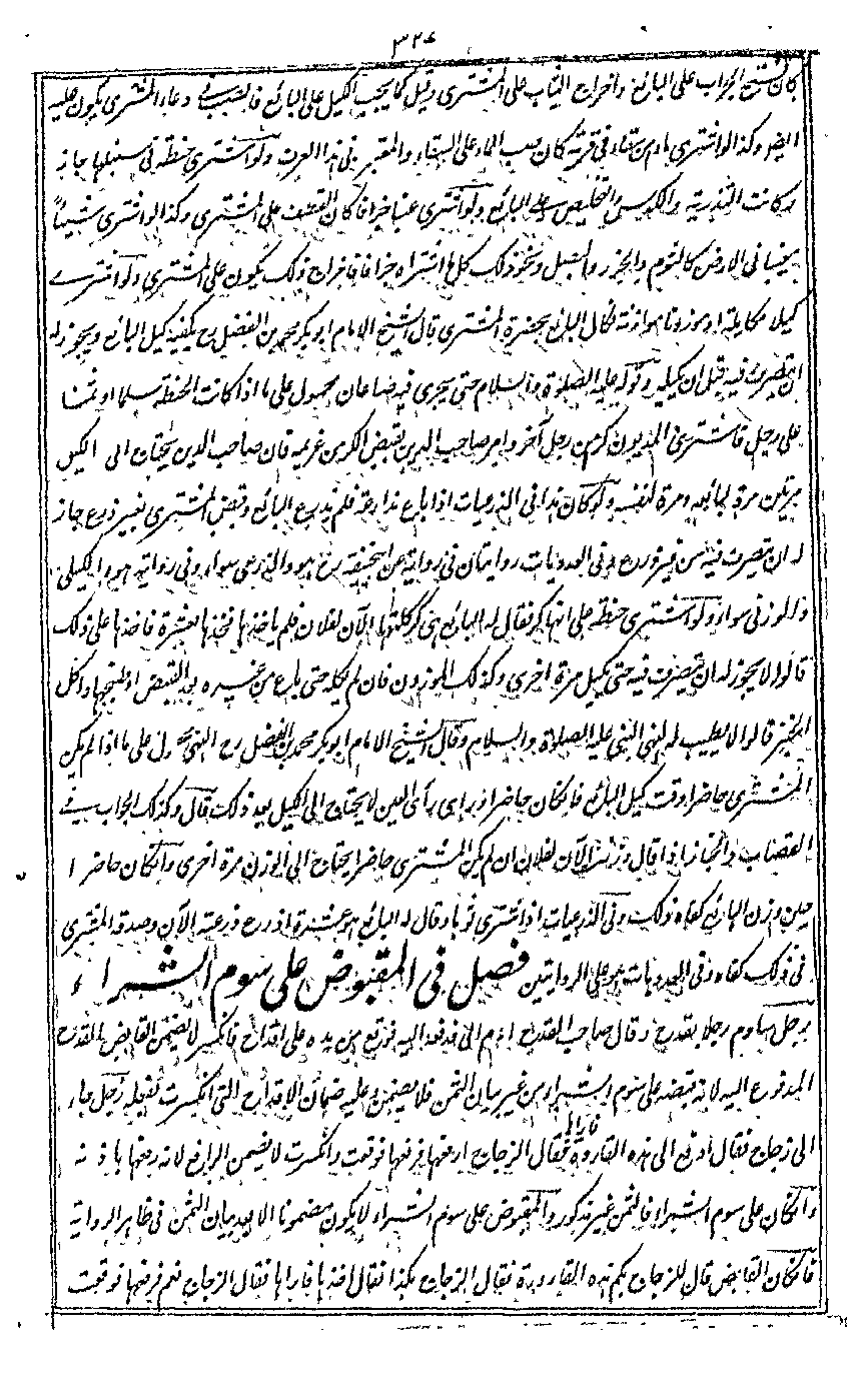 ٣٢٤
كان فتح الجراب على البائع واخراج الثياب على المشتري وقيل كما يجب الكيل على البائع فالصب في وعاء المشتري يكون عليه
ايضا وكذا لو اشترى ماء من سقاء في قربة كان صب الماء على السقاء والمعتبر في هذا العرف ولو اشترى حنطة في سنبلها جاز
وكانت التذرية والكدس والتخليص على البائع ولو اشترى عنبا جزافا كان القطف على المشتري وكذا لو اشترى شيئا
مغيبا في الارض كالثوم والجزر والبصل ونحو ذلك كلها اشتراه جزافا فاخراج ذلك يكون على المشتري ولو اشترى
كيلا مكايلة او موزونا موازنة فكال البائع بحضرة المشتري قال الشيخ الامام ابو بكر محمد بن الفضل رح يكفيه كيل البائع ويجوز له
ان يتصرف فيه قبل ان يكيله وقوله عليه الصلوة والسلام حتى يجري فيه صاعان محمول على ما اذا كانت الحنطة سلما او ثمنا
على رجل فاشترى المديون كرا من رجل آخر وامر صاحب الدين بقبض الكر من غريمه فان صاحب الدين يحتاج الى الكيل
مرتين مرة لبائعه ومرة لنفسه ولو كان هذا في الذرعيات اذا باع مذارعة فلم يذرع البائع وقبض المشتري بغير ذرع جاز
له ان يتصرف فيه من غير ذرع وفي العدديات روايتان في رواية عن ابي حنيفة رح هو والذرعي سواء وفي رواية هو والكيلي
والوزني سواء ولو اشترى حنطة على انها كر فقال له البائع هي كر كلتها الآن لفلان فلم ياخذها فخذها بعشرة فاخذها على ذلك
قالوا لا يجوز له ان يتصرف فيه حتى يكيل مرة اخرى وكذلك الموزون فان لم يكله حتى باع من غيره بعد القبض او طبخها واكل
الخبز قالوا لا يطيب له لنهي النبي عليه الصلاة والسلام وقال الشيخ الامام ابو بكر محمد بن الفضل رح النهي محمول على ما اذا لم يكن
المشتري حاضرا وقت كيل البائع فان كان حاضرا ورأى رأي العين لا يحتاج الى الكيل بعد ذلك قال وكذلك الجواب في
القصاب والخباز اذا قال وزنته الآن لفلان ان لم يكن المشتري حاضرا يحتاج الى الوزن مرة اخرى وان كان حاضرا
حين وزن البائع كفاه ذلك وفي الذرعيات اذا اشترى ثوبا وقال له البائع هو عشرة اذرع ذرعته الآن وصدقه المشتري
في ذلك كفاه وفي العدديات هو على الروايتين فصل في المقبوض على سوم الشراء
رجل ساوم رجلا بقدح وقال صاحب القدح ادفعه الي فدفعه اليه فوقع من يده على اقداح فانكسر لا يضمن القابض القدح
المدفوع اليه لانه قبضه على سوم الشراء من غير بيان الثمن فلا يضمن وعليه ضمان الاقداح التي انكسرت بفعله رجل جاء
الى زجاج فقال ادفع الي هذه القارورة فاراها فقال الزجاج ارفعها فرفعها فوقعت وانكسرت لا يضمن الرافع لانه رفعها باذنه
وان كان على سوم الشراء فالثمن غير مذكور والمقبوض على سوم الشراء لا يكون مضمونا الا بعد بيان الثمن في ظاهر الرواية
فان كان القابض قال للزجاج بكم هذه القارورة فقال الزجاج بكذا فقال آخذها فاراها فقال الزجاج نعم فرفعها فوقعت